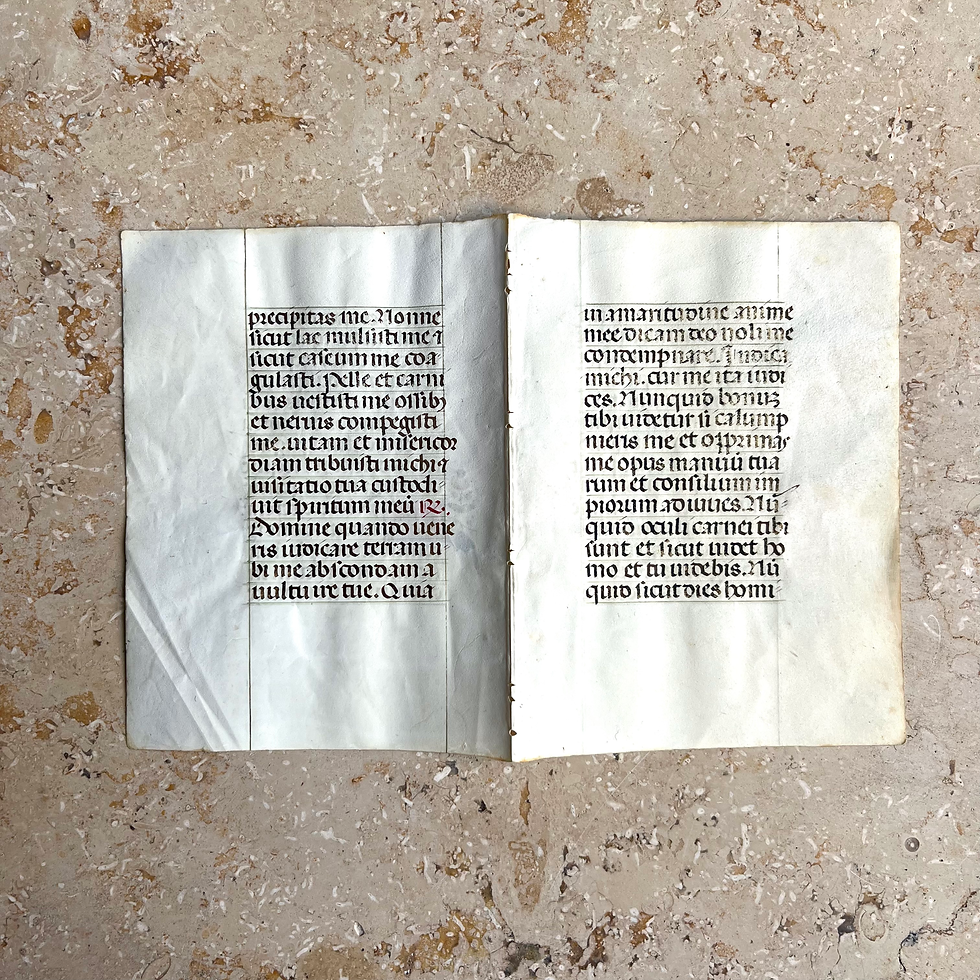 precipitas me. Nonne
sicut lac mulsisti me ⁊
sicut caseum me coa
gulasti. Pelle et carni
bus uestisti me ossibꝫ
et neruis compegisti
me. uitam et misericor
diam tribuisti michi ⁊
uisitatio tua custodi
uit spiritum meū ℞.
Domine quando uene
ris iudicare terram u
bi me abscondam a
uultu ire tue. Quia
in amaritudine anime
mee dicam deo noli me
contempnare. Indica
michi. cur me ita iudi
ces. Nunquid bonuꝫ
tibi uidetur si calump
nieris me et opprimas
me opus manuū tua
rum et consilium im
piorum adiuues. Nū
quid oculi carnei tibi
sunt et sicut uidet ho
mo et tu uidebis. Nū
quid sicut dies homi